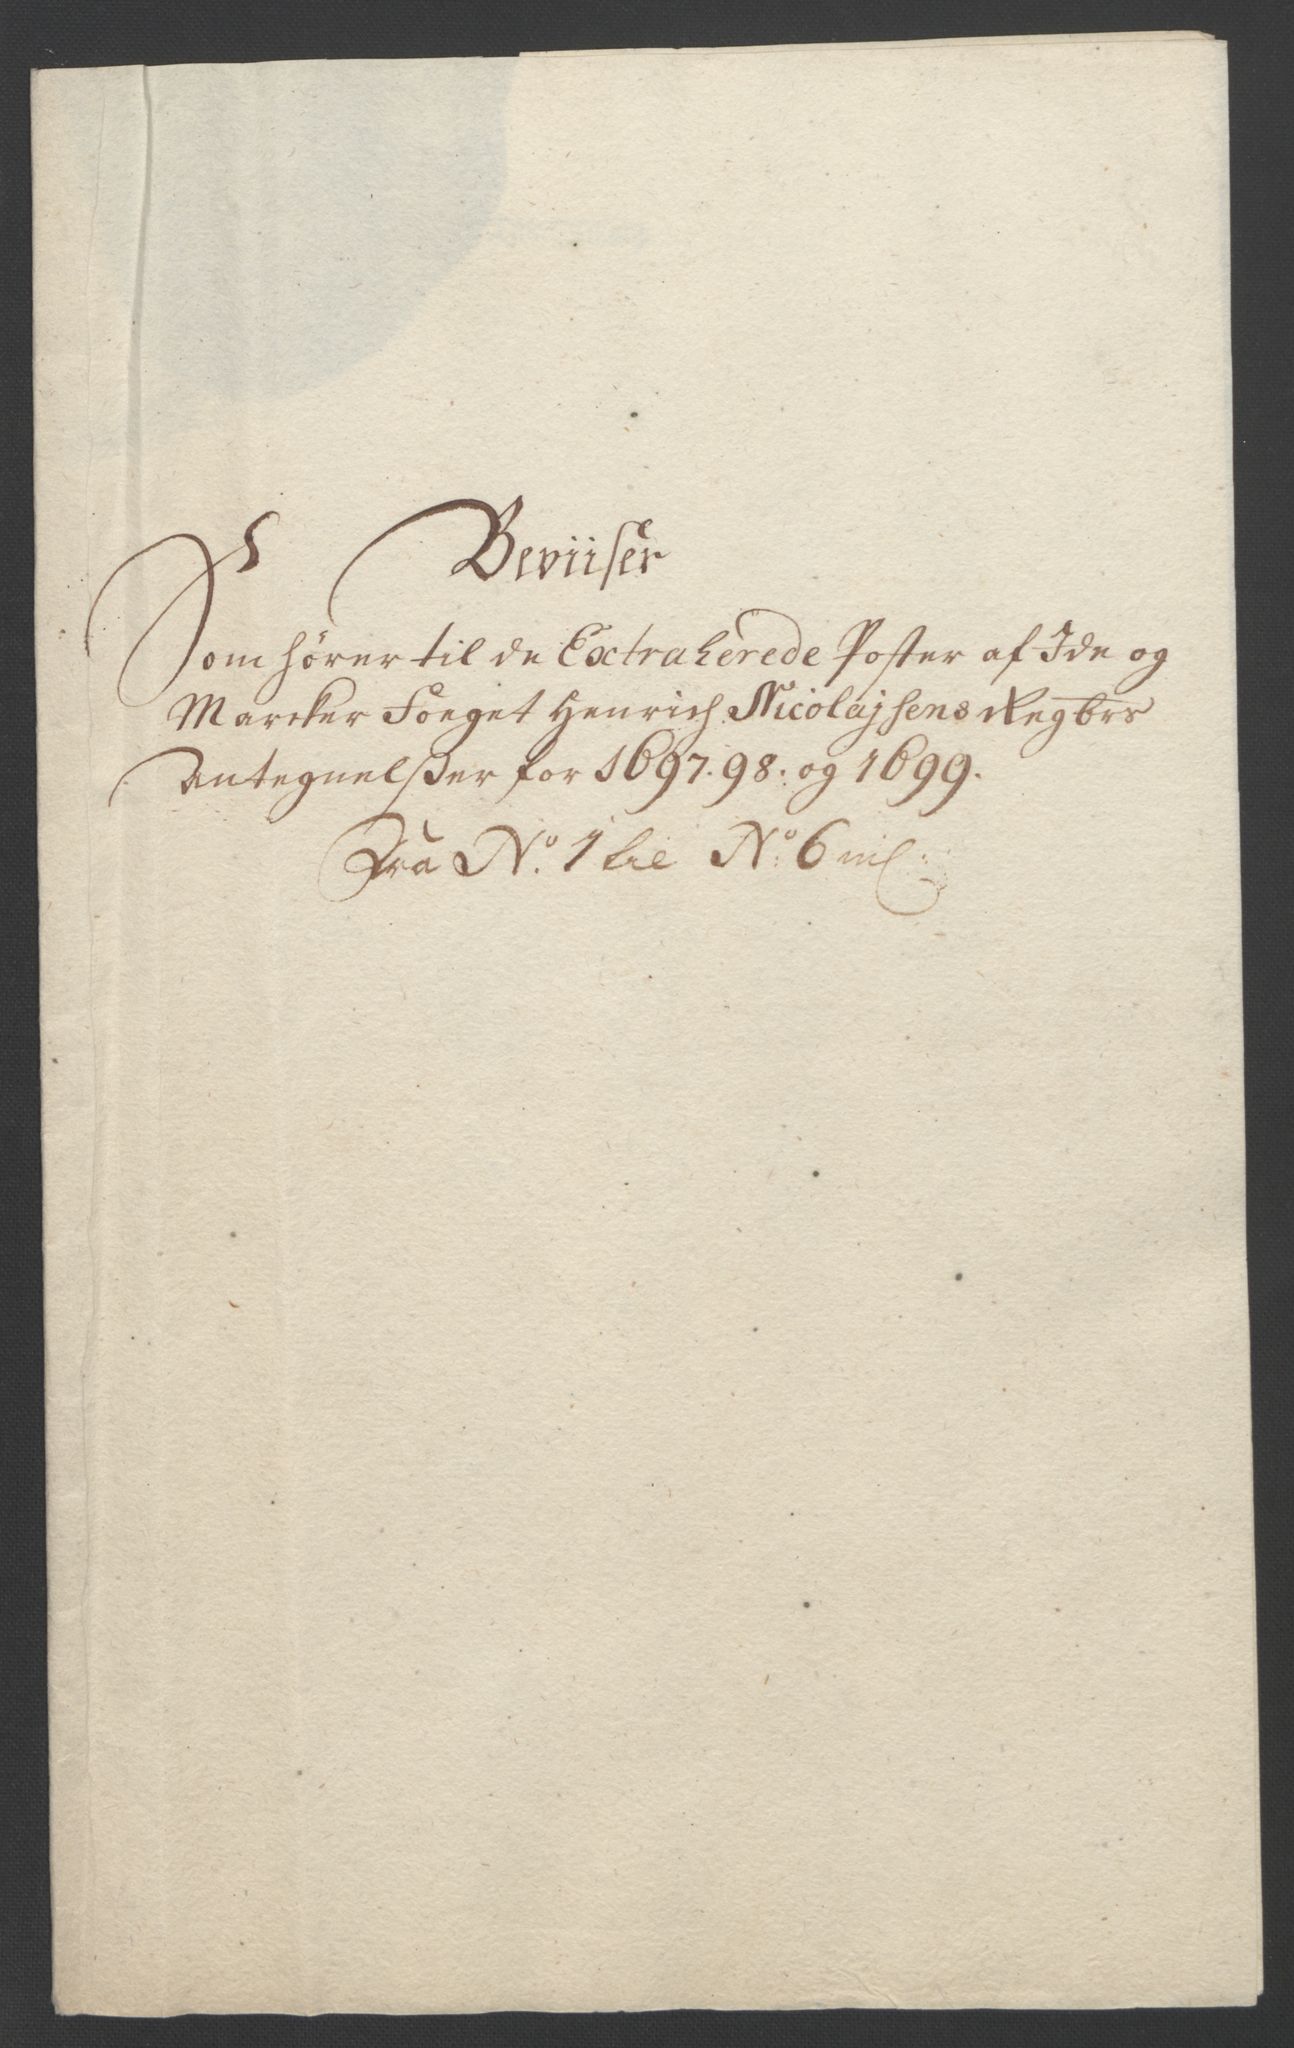 Beviiser
Som hörer til de Extraherede Poster af Ide og
Marcker Foeget Henrich Nicolajsens Regbrs
Antegnelsser for 1697. 98. og 1699.
Fra No. 1 til No. 6 incl: